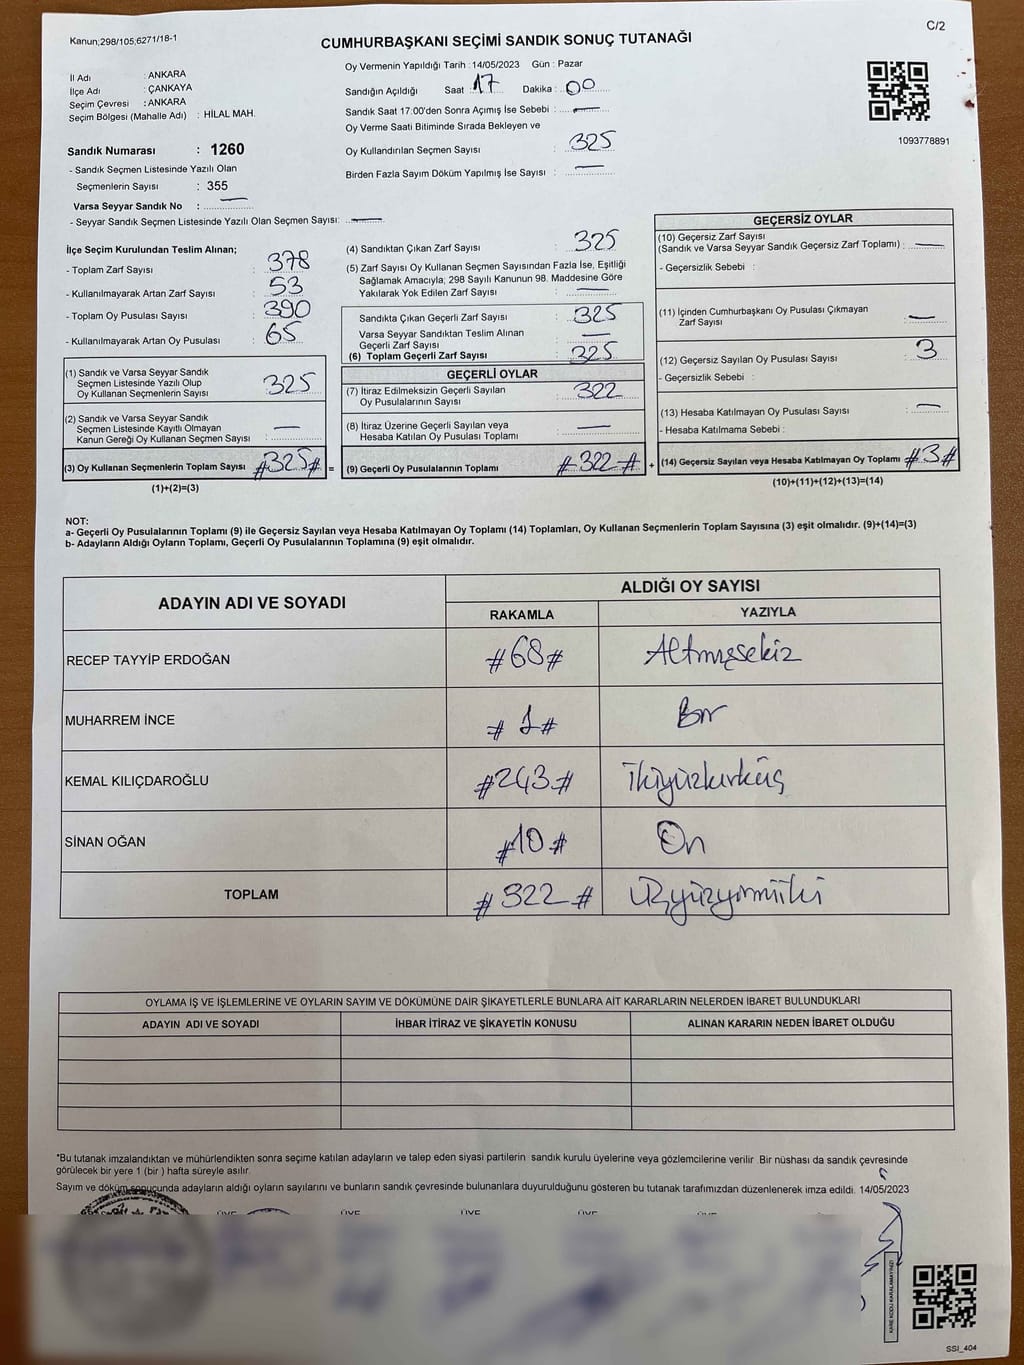 Kanun;298/105;6271/18-1
C/2
CUMHURBAŞKANI SEÇİMİ SANDIK SONUÇ TUTANAĞI
İl Adı : ANKARA
İlçe Adı : ÇANKAYA
Seçim Çevresi : ANKARA
Seçim Bölgesi (Mahalle Adı) : HİLAL MAH.
Sandık Numarası : 1260
- Sandık Seçmen Listesinde Yazılı Olan
Seçmenlerin Sayısı : 355
Varsa Seyyar Sandık No : —
- Seyyar Sandık Seçmen Listesinde Yazılı Olan Seçmen Sayısı: —
Oy Vermenin Yapıldığı Tarih :14/05/2023 Gün : Pazar
Sandığın Açıldığı Saat : 17 Dakika : 00
Sandık Saat 17:00'den Sonra Açımış İse Sebebi : —
Oy Verme Saati Bitiminde Sırada Bekleyen ve
Oy Kullandırılan Seçmen Sayısı : 325
Birden Fazla Sayım Döküm Yapılmış İse Sayısı : —
1093778891
İlçe Seçim Kurulundan Teslim Alınan;
- Toplam Zarf Sayısı : 378
- Kullanılmayarak Artan Zarf Sayısı : 53
- Toplam Oy Pusulası Sayısı : 390
- Kullanılmayarak Artan Oy Pusulası : 65
(1) Sandık ve Varsa Seyyar Sandık
Seçmen Listesinde Yazılı Olup
Oy Kullanan Seçmenlerin Sayısı : 325
(2) Sandık ve Varsa Seyyar Sandık
Seçmen Listesinde Kayıtlı Olmayan
Kanun Gereği Oy Kullanan Seçmen Sayısı : —
(3) Oy Kullanan Seçmenlerin Toplam Sayısı #325# =
(1)+(2)=(3)
(4) Sandıktan Çıkan Zarf Sayısı : 325
(5) Zarf Sayısı Oy Kullanan Seçmen Sayısından Fazla İse, Eşitliği
Sağlamak Amacıyla; 298 Sayılı Kanunun 98. Maddesine Göre
Yakılarak Yok Edilen Zarf Sayısı : —
Sandıkta Çıkan Geçerli Zarf Sayısı : 325
Varsa Seyyar Sandıktan Teslim Alınan
Geçerli Zarf Sayısı : —
(6) Toplam Geçerli Zarf Sayısı : 325
GEÇERLİ OYLAR
(7) İtiraz Edilmeksizin Geçerli Sayılan
Oy Pusulalarının Sayısı : 322
(8) İtiraz Üzerine Geçerli Sayılan veya
Hesaba Katılan Oy Pusulası Toplamı : —
(9) Geçerli Oy Pusulalarının Toplamı #322# +
GEÇERSİZ OYLAR
(10) Geçersiz Zarf Sayısı
(Sandık ve Varsa Seyyar Sandık Geçersiz Zarf Toplamı) : —
- Geçersizlik Sebebi :
(11) İçinden Cumhurbaşkanı Oy Pusulası Çıkmayan
Zarf Sayısı : —
(12) Geçersiz Sayılan Oy Pusulası Sayısı : 3
- Geçersizlik Sebebi :
(13) Hesaba Katılmayan Oy Pusulası Sayısı : —
- Hesaba Katılmama Sebebi :
(14) Geçersiz Sayılan veya Hesaba Katılmayan Oy Toplamı #3#
(10)+(11)+(12)+(13)=(14)
NOT:
a- Geçerli Oy Pusulalarının Toplamı (9) ile Geçersiz Sayılan veya Hesaba Katılmayan Oy Toplamı (14) Toplamları, Oy Kullanan Seçmenlerin Toplam Sayısına (3) eşit olmalıdır. (9)+(14)=(3)
b- Adayların Aldığı Oyların Toplamı, Geçerli Oy Pusulalarının Toplamına (9) eşit olmalıdır.
ADAYIN ADI VE SOYADI ALDIĞI OY SAYISI
RAKAMLA YAZIYLA
RECEP TAYYİP ERDOĞAN #68# Altmışsekiz
MUHARREM İNCE #1# Bir
KEMAL KILIÇDAROĞLU #243# İkiyüzkırküç
SİNAN OĞAN #10# On
TOPLAM #322# Üçyüzyirmiiki
OYLAMA İŞ VE İŞLEMLERİNE VE OYLARIN SAYIM VE DÖKÜMÜNE DAİR ŞİKAYETLERLE BUNLARA AİT KARARLARIN NELERDEN İBARET BULUNDUKLARI
ADAYIN ADI VE SOYADI İHBAR İTİRAZ VE ŞİKAYETİN KONUSU ALINAN KARARIN NEDEN İBARET OLDUĞU
*Bu tutanak imzalandıktan ve mühürlendikten sonra seçime katılan adayların ve talep eden siyasi partilerin sandık kurulu üyelerine veya gözlemcilerine verilir. Bir nüshası da sandık çevresinde
görülecek bir yere 1 (bir ) hafta süreyle asılır.
Sayım ve döküm sonucunda adayların aldığı oyların sayılarını ve bunların sandık çevresinde bulunanlara duyurulduğunu gösteren bu tutanak tarafımızdan düzenlenerek imza edildi. 14/05/2023
ÜYE ÜYE ÜYE ÜYE ÜYE
KARE KODU KARALAMAYINIZ!
SSI_404